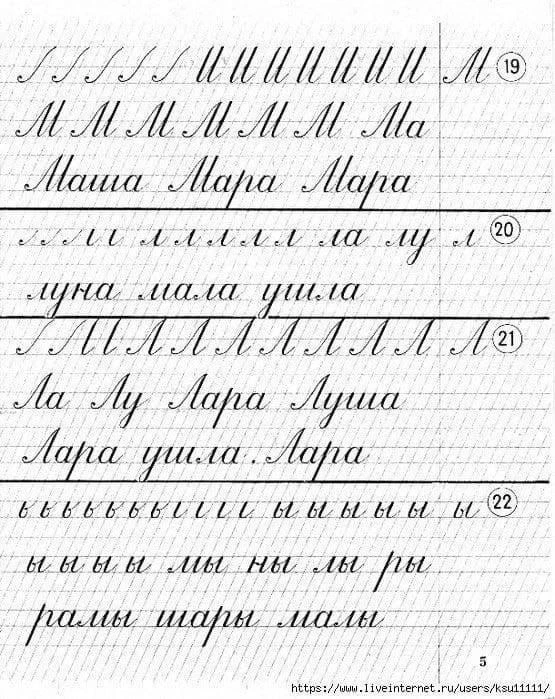 М 19
М М М М М М Ма
Маша Мара Мара
л л л л л ла лу л 20
луна мала ушла
Л Л Л Л Л Л Л Л 21
Ла Лу Лара Луша
Лара ушла. Лара
ь ь ь ь ь ь ь ы ы ы ы ы ы 22
ы ы ы ы мы ны лы ры
рамы шары малы
5
https://www.liveinternet.ru/users/ksu11111/